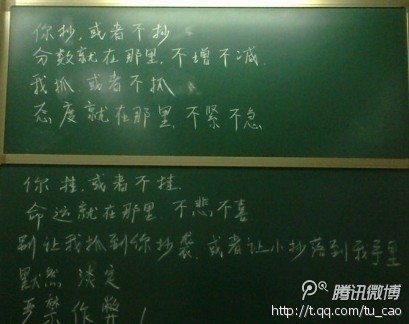 你抄，或者不抄
分数就在那里，不增不减，
我抓，或者不抓
态度就在那里，不紧不急
你挂，或者不挂，
命运就在那里 不悲不喜
别让我抓到你抄袭，或者让小抄落到我手里
默然 淡定
严禁作弊！
腾讯微博
http://t.qq.com/tu_cao